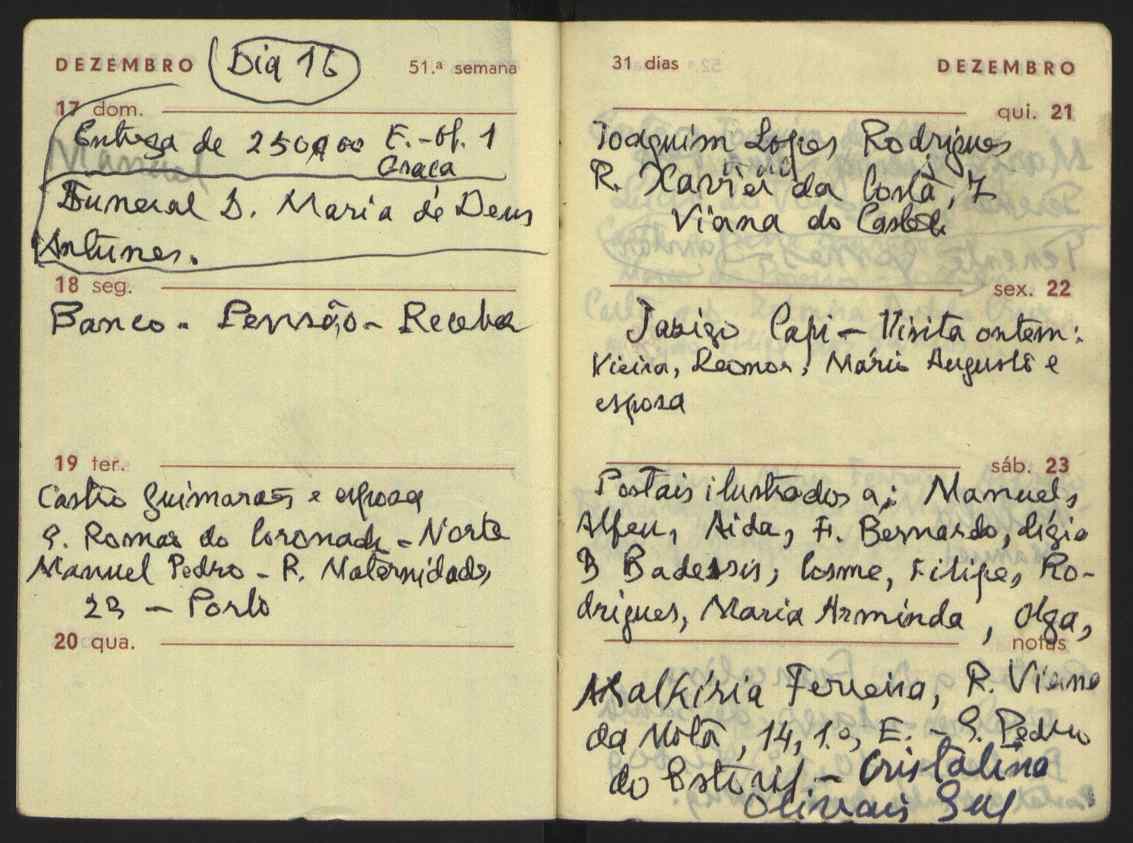 DEZEMBRO Dia 16 51.ª semana
17 dom.
Entrega de 250000 E.-Of. 1
Graça
Manual
Funeral D. Maria de Deus
Antunes.
18 seg.
Banco - Pensão - Receber
19 ter.
Castro Guimarães e esposa
S. Romão do Coronado - Norte
Manuel Pedro - R. Maternidade,
23 - Porto
20 qua.
31 dias DEZEMBRO
qui. 21
Joaquim Lopes Rodrigues
R. Xavier da Costa, 7
Viana do Castelo
sex. 22
Jazigo Capi - Visita ontem:
Vieira, Leonor, Mário Augusto e
esposa
sáb. 23
Postais ilustrados a: Manuel,
Alfeu, Aida, F. Bernardo, Lígia
B Badessis, Cosme, Filipe, Ro-
drigues, Maria Arminda, Olga,
notas
Ferreira, R. Viana
da Mota, 14, 1.º, E. - S. Pedro
do Estoril - Cristalina
Olivais Sul